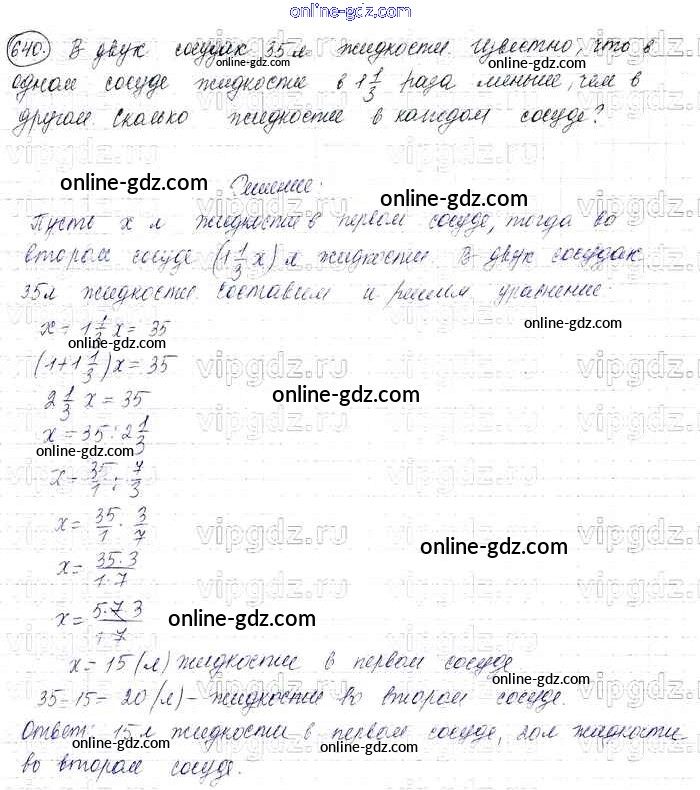 online-gdz.com
640. В двух сосудах 35 л жидкости. Известно, что в
одном сосуде жидкости в 1 1/3 раза меньше, чем в
другом. Сколько жидкости в каждом сосуде?
Решение:
Пусть x л жидкости в первом сосуде, тогда во
втором сосуде (1 1/3 x) л жидкости. В двух сосудах
35 л жидкости. Составим и решим уравнение:
x + 1 1/3 x = 35
(1+1 1/3)x = 35
2 1/3 x = 35
x = 35 : 2 1/3
x = 35/1 : 7/3
x = 35/1 · 3/7
x = 35·3/1·7
x = 5·7·3/1·7
x = 15 (л) жидкости в первом сосуде
35-15 = 20 (л) - жидкости во втором сосуде.
Ответ: 15 л жидкости в первом сосуде, 20 л жидкости
во втором сосуде.
online-gdz.com
online-gdz.com
online-gdz.com
online-gdz.com
online-gdz.com
online-gdz.com
online-gdz.com
online-gdz.com
online-gdz.com
online-gdz.com
online-gdz.com
online-gdz.com
online-gdz.com
online-gdz.com
vipgdz.ru